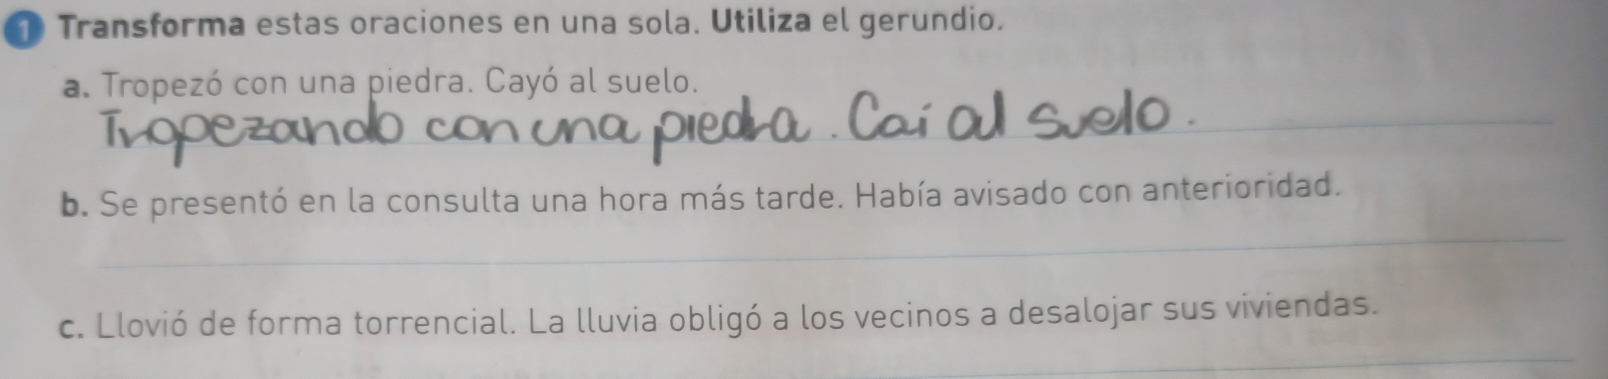 1 Transforma estas oraciones en una sola. Utiliza el gerundio.
a. Tropezó con una piedra. Cayó al suelo.
Tropezando con una piedra. Cai al suelo.
b. Se presentó en la consulta una hora más tarde. Había avisado con anterioridad.
c. Llovió de forma torrencial. La lluvia obligó a los vecinos a desalojar sus viviendas.